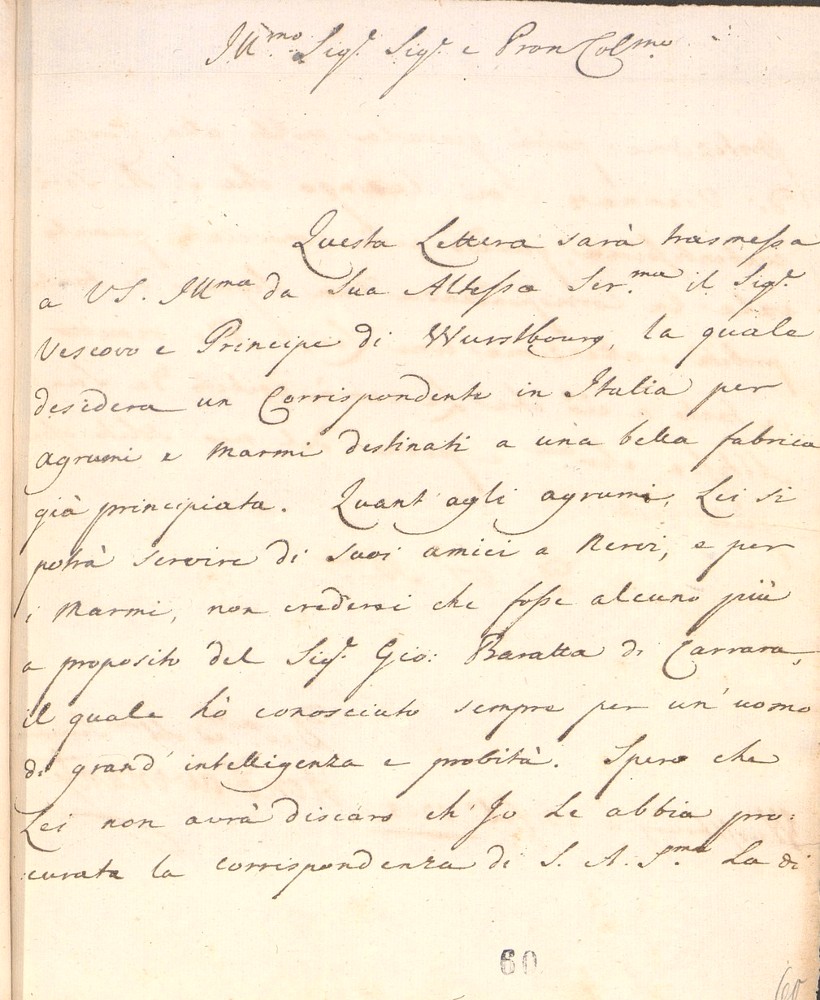 Ill.mo Sig.r Sig.r e Pron Col.mo
Questa Lettera sarà trasmessa
a VS. Ill.ma da Sua Altessa Ser.ma il Sig.r
Vescovo e Principe di Wurstbourg, la quale
desidera un Corrispondente in Italia per
agrumi e marmi destinati a una bella fabrica
già principiata. Quant' agli agrumi, Lei si
potrà servire di suoi amici a Nervi, e per
i Marmi, non crederei che fosse alcuno più
a proposito del Sig.r Gio: Baratta di Carrara,
il quale hò conosciuto sempre per un' uomo
di grand' intelligenza e probità. Spero che
Lei non avrà discaro ch' Io Le abbia pro:
:curata la corrispondenza di S. A. S.ma La di
60
60